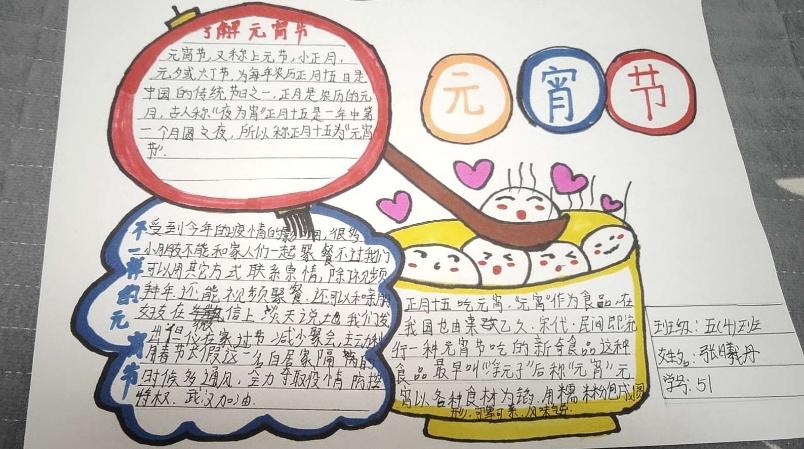 了解元宵节
元宵节,又称上元节,小正月,
元夕或灯节,为每年农历正月十五日是
中国的传统节日之一,正月是农历的元
月,古人称“夜为宵”正月十五是一年中第
一个月圆之夜,所以称正月十五为“元宵
节”.
元宵节
不一样的元宵节
受到今年的疫情的影响,很多
小朋友不能和家人们一起聚餐不过我们
可以用其它方式联系亲情,除
拜年还能视频聚餐.还可以和
信上聊天说 我们
但 在家过节·减少聚会,
春节大假这一 居家隔
时候多通风,全力争取疫情防控
武汉加油.
正月十五吃元宵.“元宵”作为食品.在
我国也由来 乙久.宋代·民间即流
行一种元宵节吃的新奇食品这种
食品最早叫“ 元子”后称“元宵”元
宵以各种食材为馅.用糯米粉包成圆
形,可 可 ,风味
班级:五(4)班
姓名:张曦丹
学号:51